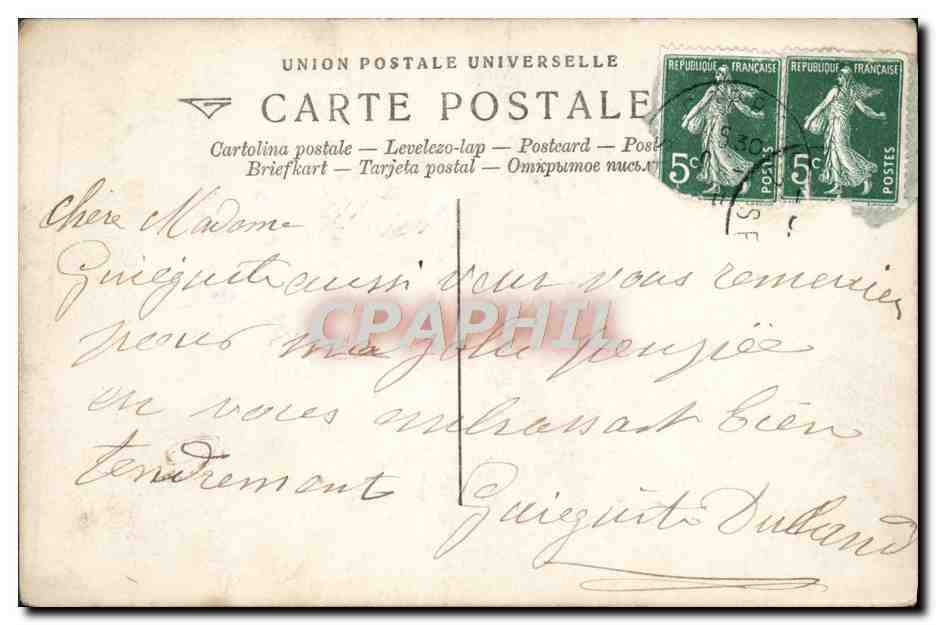 UNION POSTALE UNIVERSELLE
CARTE POSTALE
Cartolina postale — Levelezo-lap — Postcard — Post
Briefkart — Tarjeta postal — Открытое письм
REPUBLIQUE FRANÇAISE
5c POSTES
REPUBLIQUE FRANÇAISE
5c POSTES
chere Madame
aussi veux vous remercier
pour ma jolie poupée
en vous embrassant bien
tendrement
CPAPHIL